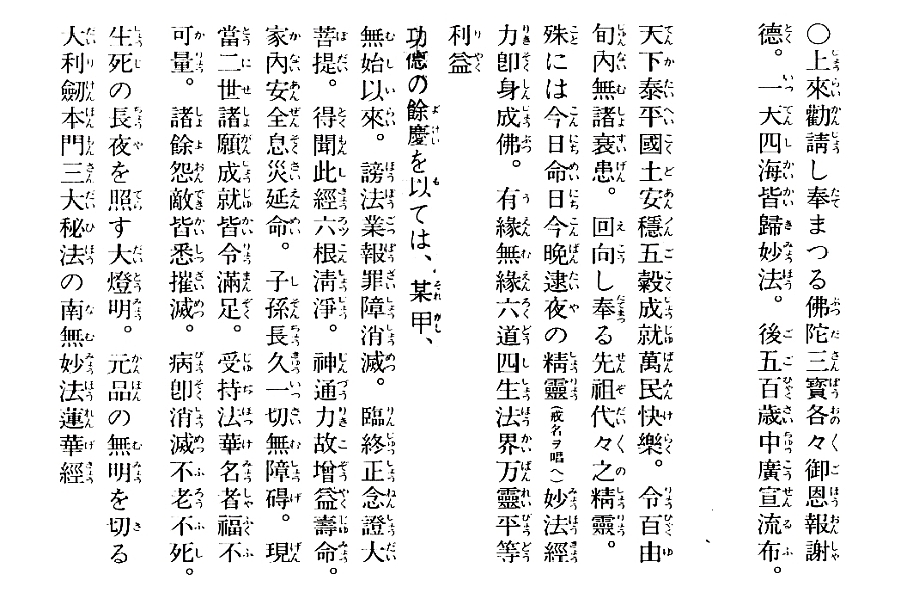 〇上來勸請し奉まつる佛陀三寳各々御恩報謝
德。一大四海皆歸妙法。後五百歳中廣宣流布。
天下泰平國土安穩五穀成就萬民快樂。令百由
旬內無諸衰患。回向し奉る先祖代々之精靈。
殊には今日命日今晩逮夜の精靈(戒名ヲ唱へ)妙法經
力卽身成佛。有緣無緣六道四生法界万靈平等
利益
功德の餘慶を以ては、某甲、
無始以來。謗法業報罪障消滅。臨終正念證大
菩提。得聞此經六根淸淨。神通力故增益壽命。
家內安全息災延命。子孫長久一切無障碍。現
當二世諸願成就皆令滿足。受持法華名者福不
可量。諸餘怨敵皆悉摧滅。病卽消滅不老不死。
生死の長夜を照す大燈明。元品の無明を切る
大利劒本門三大秘法の南無妙法蓮華經